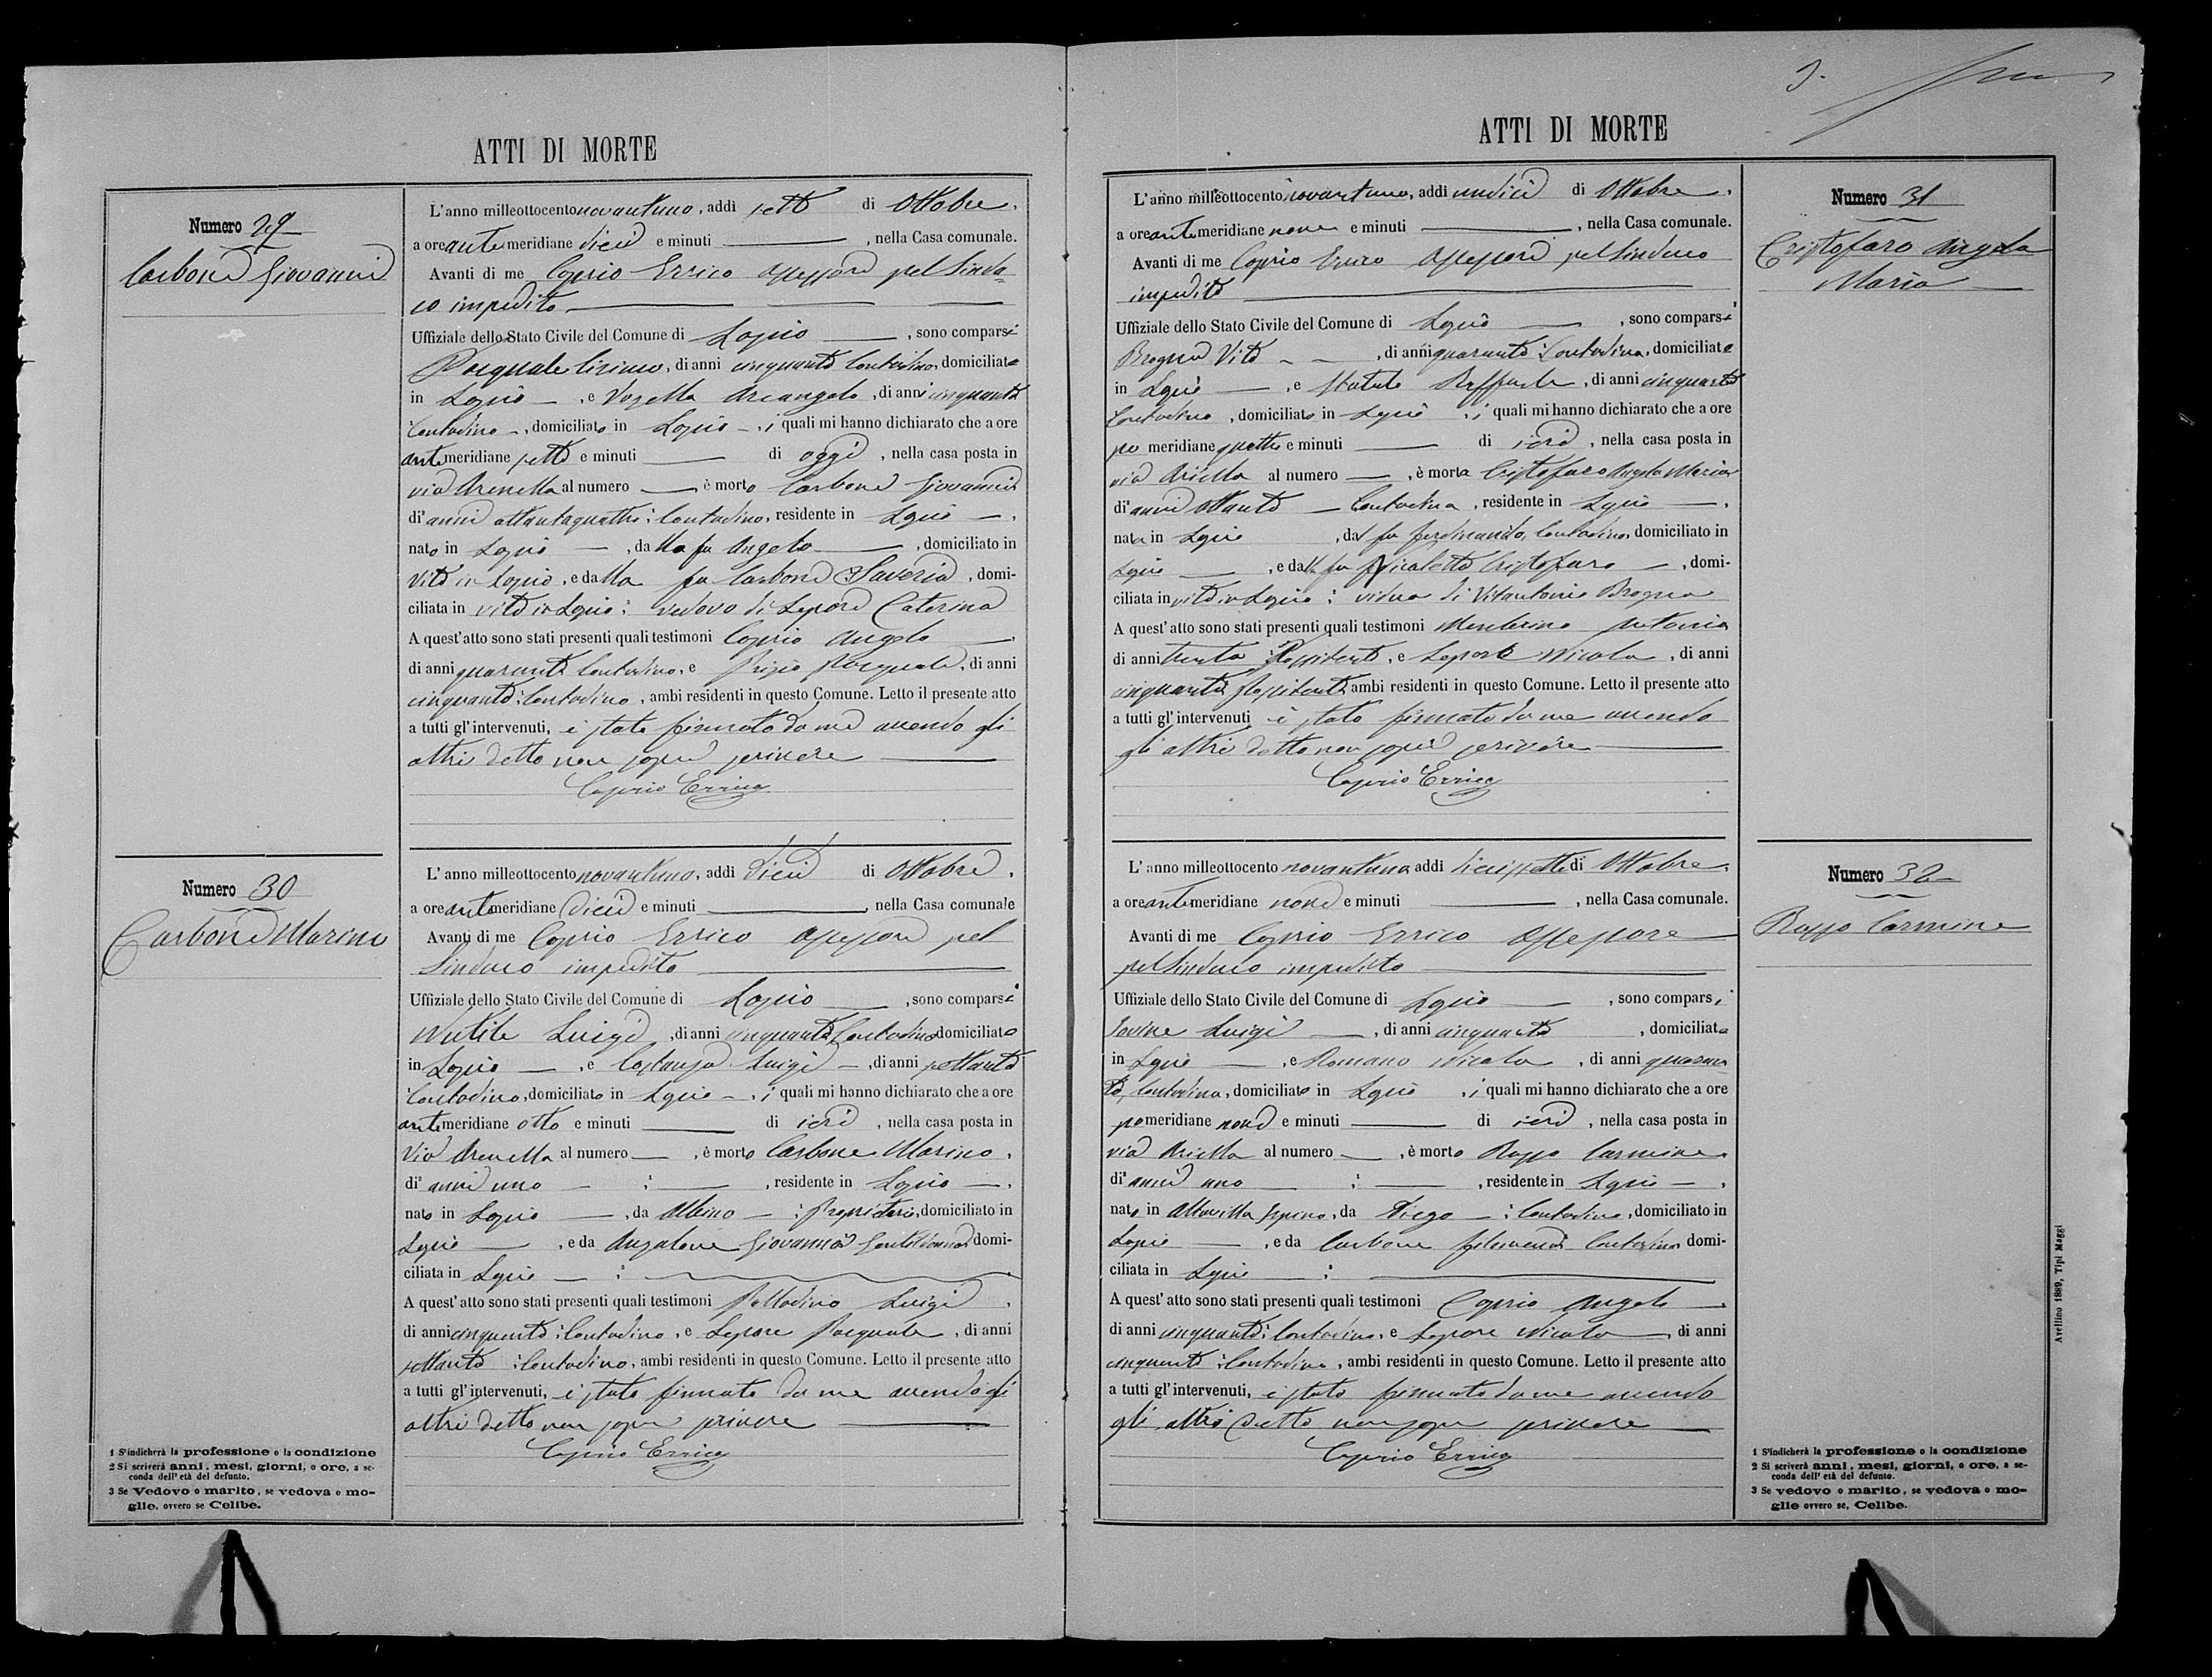 ATTI DI MORTE
Numero 29
Carbone Giovanni
L'anno milleottocento novantuno, addì sette di Ottobre,
a ore ante meridiane dieci e minuti , nella Casa comunale.
Avanti di me Caprio Errico Assessore pel Sinda-
co impedito
Uffiziale dello Stato Civile del Comune di Lapio , sono comparsi
Pasquale Ciriaco, di anni cinquanta Contadino, domiciliato
in Lapio , e Vozella Arcangelo, di anni cinquanta
Contadino, domiciliato in Lapio , i quali mi hanno dichiarato che a ore
ante meridiane sette e minuti di oggi , nella casa posta in
via Arenella al numero , è morto Carbone Giovanni
di anni ottantaquattro : Contadino, residente in Lapio ,
nato in Lapio , dallo fu Angelo , domiciliato in
vita in Lapio, e dalla fu Carbone Saveria, domi-
ciliata in vita in Lapio : vedovo di Lepore Caterina
A quest'atto sono stati presenti quali testimoni Caprio Angelo ,
di anni quaranta Contadino, e Pasquale, di anni
cinquanta : Contadino, ambi residenti in questo Comune. Letto il presente atto
a tutti gl'intervenuti, è stato firmato da me avendo gli
altri detto non saper scrivere
Caprio Errico
Numero 30
Carbone Marino
L'anno milleottocento novantuno, addì dieci di Ottobre,
a ore ante meridiane dieci e minuti , nella Casa comunale
Avanti di me Caprio Errico Assessore pel
Sindaco impedito
Uffiziale dello Stato Civile del Comune di Lapio , sono comparsi
Luigi, di anni cinquanta Contadino domiciliato
in Lapio , e Costanza Luigi , di anni settanta
Contadino, domiciliato in Lapio , i quali mi hanno dichiarato che a ore
ante meridiane otto e minuti di ieri , nella casa posta in
Via Arenella al numero , è morto Carbone Marino,
di anni uno : , residente in Lapio ,
nato in Lapio , da Albino : Proprietario, domiciliato in
Lapio , e da Anzalone Giovanna Gentildonna, domi-
ciliata in Lapio :
A quest'atto sono stati presenti quali testimoni Palladino Luigi ,
di anni cinquanta : Contadino, e Lepore Pasquale , di anni
settanta : Contadino, ambi residenti in questo Comune. Letto il presente atto
a tutti gl'intervenuti, è stato firmato da me avendo gli
altri detto non saper scrivere
Caprio Errico
1 S'indicherà la professione o la condizione
2 Si scriverà anni, mesi, giorni, o ore, a se-
conda dell'età del defunto.
3 Se Vedovo o marito, se vedova o mo-
glie, ovvero se Celibe.
ATTI DI MORTE
Numero 31
Cristofaro Angela
Maria
L'anno milleottocento novantuno, addì undici di Ottobre,
a ore ante meridiane nove e minuti , nella Casa comunale.
Avanti di me Caprio Errico Assessore pel Sindaco
impedito
Uffiziale dello Stato Civile del Comune di Lapio , sono comparsi
Brogna Vito , di anni quaranta : Contadino, domiciliato
in Lapio , e Raffaele , di anni cinquanta
Contadino , domiciliato in Lapio , i quali mi hanno dichiarato che a ore
po meridiane quattro e minuti di ieri , nella casa posta in
via Ariella al numero , è morta Cristofaro Angela Maria
di anni ottanta Contadina , residente in Lapio ,
nata in Lapio , dal fu Ferdinando, Contadino, domiciliato in
Lapio , e dalla fu Nicoletta Cristofaro , domi-
ciliata in vita in Lapio : vidua di Vitantonio Brogna
A quest'atto sono stati presenti quali testimoni Antonio
di anni trenta : Possidente, e Lepore Nicola , di anni
cinquanta Possidente ambi residenti in questo Comune. Letto il presente atto
a tutti gl'intervenuti, è stato firmato da me avendo
gli altri detto non saper scrivere
Caprio Errico
Numero 32
Russo Carmine
L'anno milleottocento novantuno addì diciassette di Ottobre,
a ore ante meridiane nove e minuti , nella Casa comunale.
Avanti di me Caprio Errico Assessore
pel Sindaco impedito
Uffiziale dello Stato Civile del Comune di Lapio , sono comparsi
Iovine Luigi , di anni cinquanta , domiciliato
in Lapio , e Romano Nicola , di anni quaran
ta, Contadino, domiciliato in Lapio , i quali mi hanno dichiarato che a ore
po meridiane nove e minuti di ieri , nella casa posta in
via Ariella al numero , è morto Russo Carmine
di anni uno : , residente in Lapio ,
nato in Altavilla Irpina, da Diego : Contadino, domiciliato in
Lapio , e da Carbone Filomena Contadina domi-
ciliata in Lapio :
A quest'atto sono stati presenti quali testimoni Caprio Angelo ,
di anni cinquanta : Contadino, e Lepore Nicola , di anni
cinquanta : Contadino, ambi residenti in questo Comune. Letto il presente atto
a tutti gl'intervenuti, è stato firmato da me avendo
gli altri detto non saper scrivere
Caprio Errico
1 S'indicherà la professione o la condizione
2 Si scriverà anni, mesi, giorni, o ore, a se-
conda dell'età del defunto.
3 Se vedovo o marito, se vedova o mo-
glie ovvero se, Celibe.
Avellino 1889, Tipi Maggi